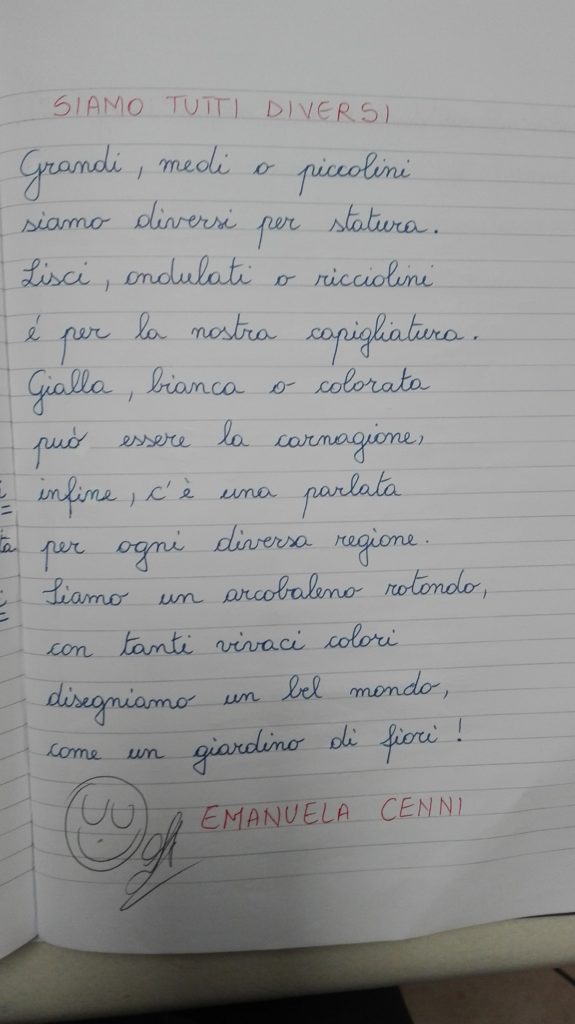 SIAMO TUTTI DIVERSI
Grandi, medi o piccolini
siamo diversi per statura.
Lisci, ondulati o ricciolini
é per la nostra capigliatura.
Gialla, bianca o colorata
può essere la carnagione,
infine, c'è una parlata
per ogni diversa regione.
Siamo un arcobaleno rotondo,
con tanti vivaci colori
disegniamo un bel mondo,
come un giardino di fiori!
EMANUELA CENNI